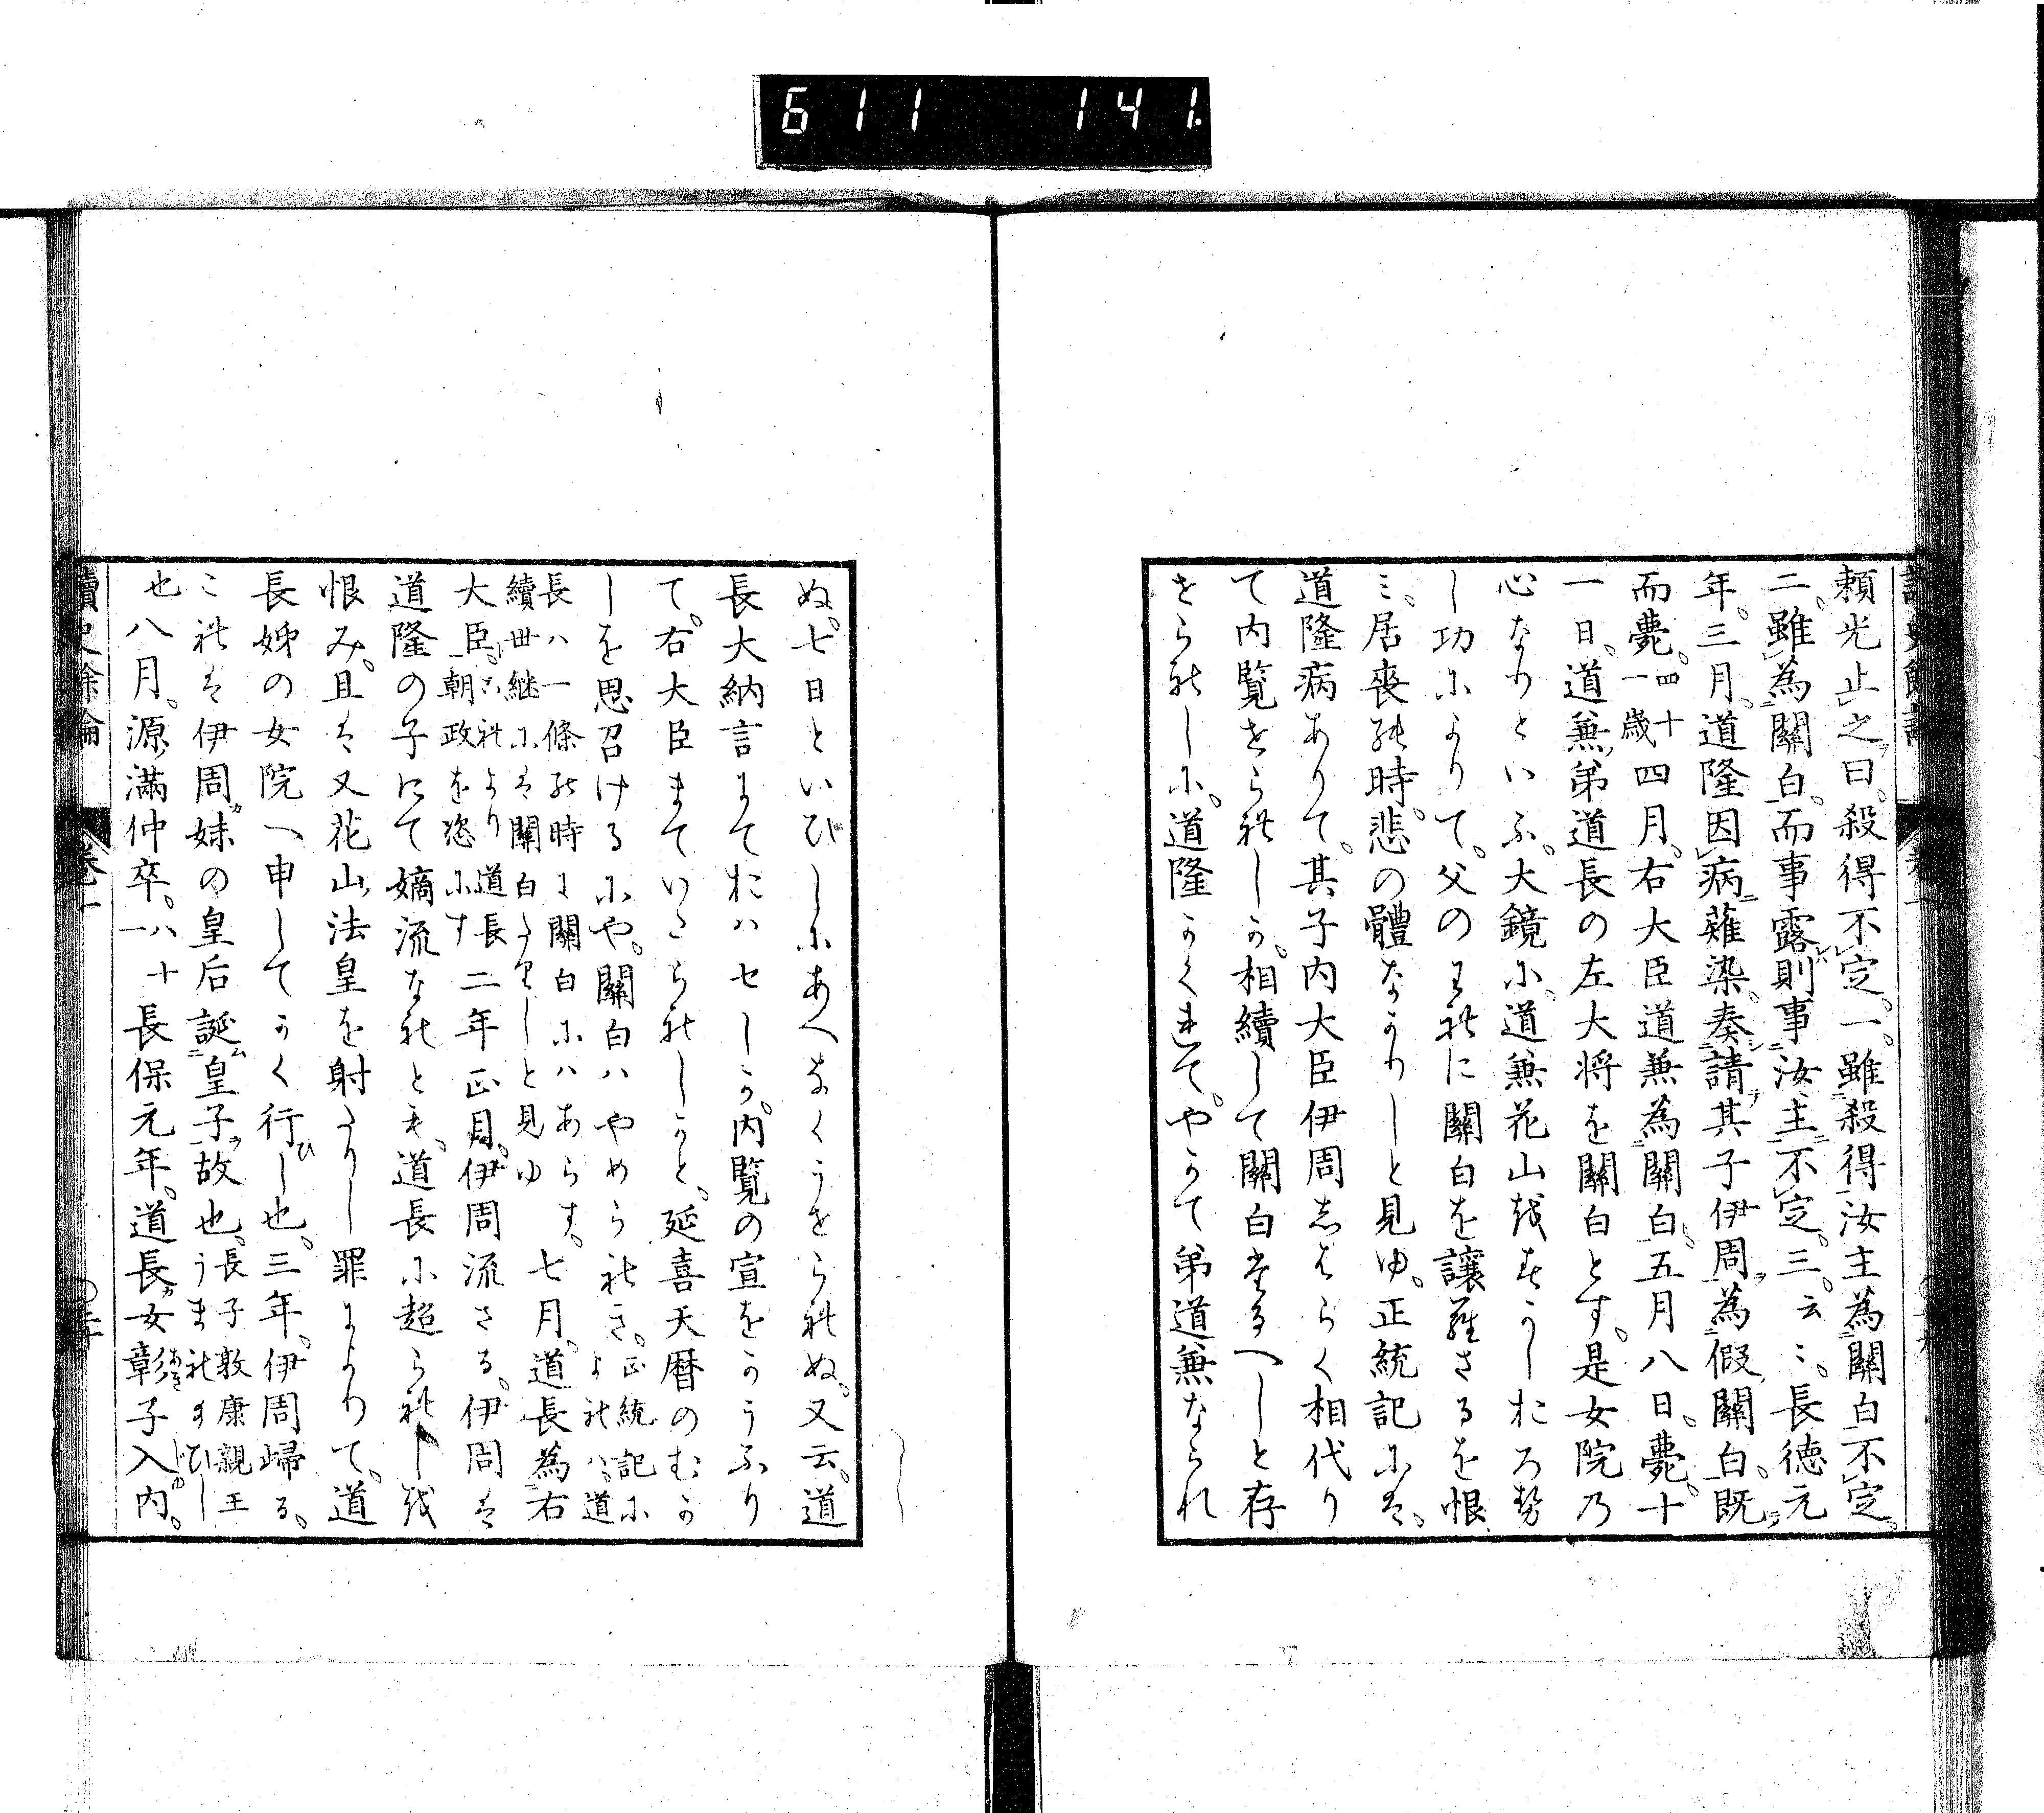 611 141
頼光止之曰。殺得不定。一。雖殺得汝主為關白不定。
二。雖為關白。而事露則事汝主不定。三。云〻。長徳元
年。三月。道隆因病薙染。奏請其子伊周為假關白。既
而薨。四十一歳四月。右大臣道兼為關白。五月八日。薨。十
一日。道兼弟道長の左大将を關白とす。是女院乃
心なりといふ。大鏡に。道兼花山越すかしおろ勢
し功によりて。父のわれに關白を讓羅さるを恨
ミ。居喪能時。悲の體なかりしと見ゆ。正統記には。
道隆病ありて。其子内大臣伊周志はらく相代り
て内覧せられしか。相續して關白たるへしと存
せられしに。道隆かくれて。やかて弟道兼なられ
ぬ。七日といひしにあへなくうせられぬ。又云。道
長大納言にておハセしか。内覧の宣をかうふり
て。右大臣まていたられしかと。延喜天暦のむか
しを思召けるにや。關白ハやめられき。正統記によれハ。道
長ハ一條の時に關白にハあらす。續世継には關白たりしと見ゆ 七月。道長為右
大臣。これより道長朝政を恣にす 二年正月。伊周流さる。伊周は
道隆の子にて嫡流なれとも。道長に超られし越
恨み。且は又花山法皇を射たりし罪によりて。道
長姊の女院へ申してかく行ひし也。三年。伊周歸る。
これは伊周妹の皇后誕皇子故也。長子敦康親王うまれ給ひし
也 八月。源満仲卒。八十一 長保元年。道長女彰子入内。
讀史餘論 卷一